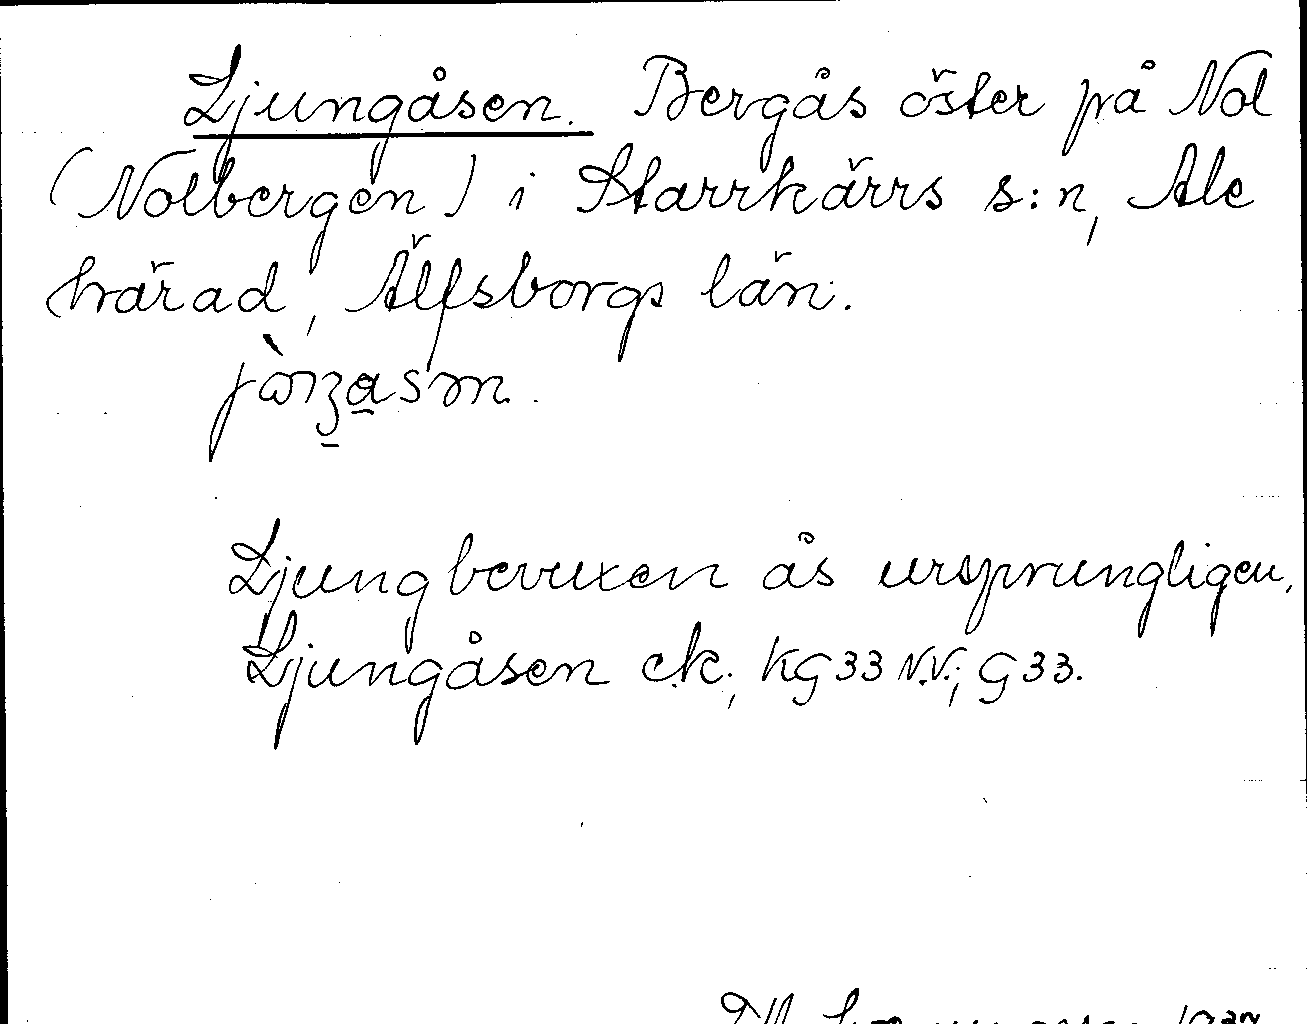 Ljungåsen. Bergås öster på Nol
(Nolbergen) i Starrkärrs s:n, Ale
härad, Älfsborgs län.
Ljungbevuxen ås ursprungligen.
Ljungåsen e.k., KG33 N.V.; G33.